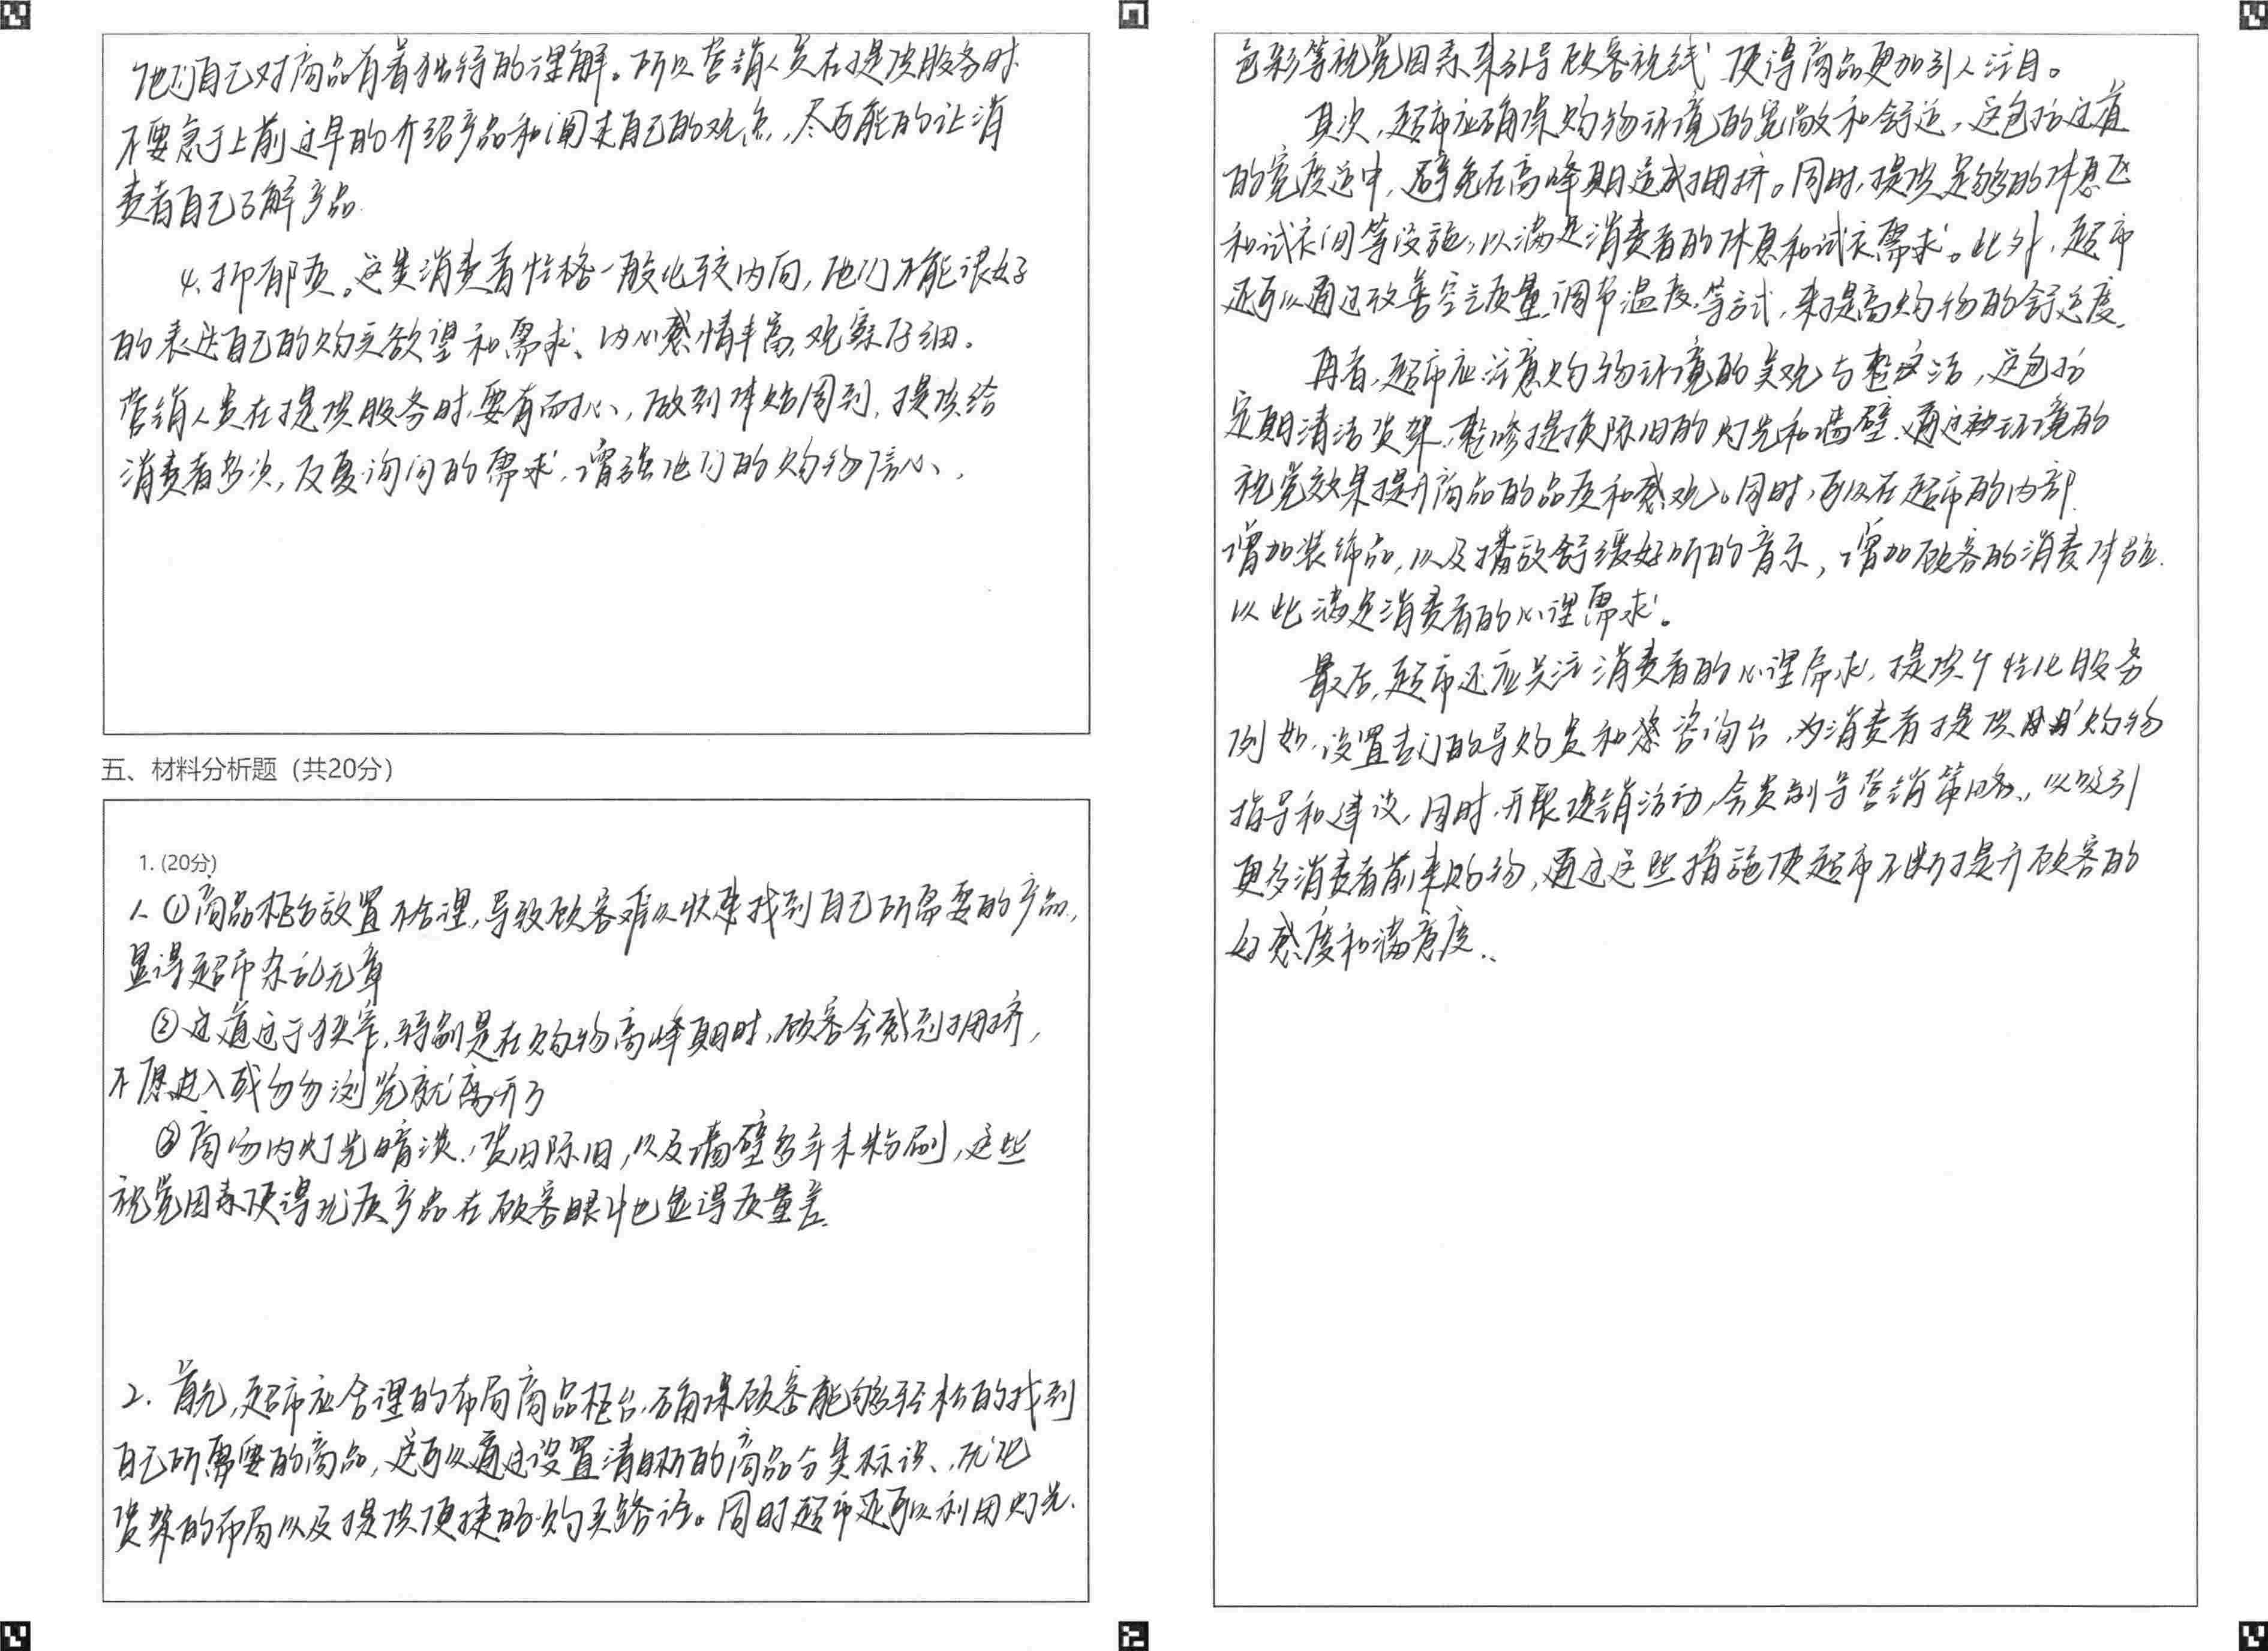 他们自己对商品有着独特的理解。所以营销人员在提供服务时
不要急于上前过早的介绍产品和阐述自己的观点,尽可能的让消
费者自己了解产品.
4、抑郁质。这类消费者性格一般比较内向,他们不能很好
的表达自己的购买欲望和需求、内心感情丰富,观察仔细。
营销人员在提供服务时,要有耐心,做到体贴周到,提供给
消费者多次,反复询问的需求,增强他们的购物信心、
五、材料分析题(共20分)
1. (20分)
1、①商品柜台放置不合理,导致顾客难以快速找到自己所需要的产品,
显得超市杂乱无章
②过道过于狭窄,特别是在购物高峰期时,顾客会感到拥挤,
不愿进入或匆匆浏览就离开了
③商场内灯光暗淡,货旧陈旧,以及墙壁多年未粉刷,这些
视觉因素使得优质产品在顾客眼中也显得质量差.
2. 首先,超市应合理的布局商品柜台,确保顾客能够轻松的找到
自己所需要的商品,这可以通过设置清晰的商品分类标识、优化
货架的布局以及提供便捷的购买路径。同时超市还可以利用灯光、
色彩等视觉因素来引导顾客视线,使得商品更加引人注目。
其次,超市应确保购物环境的宽敞和舒适,这包括过道
的宽度适中,避免在高峰期造成拥挤。同时,提供足够的休息区
和试衣间等设施,以满足消费者的休息和试衣需求。此外,超市
还可以通过改善空气质量,调节温度,等方式,来提高购物的舒适度.
再者,超市应注意购物环境的美观与整洁,这包括
定期清洁货架,整修提换陈旧的灯光和墙壁.通过环境的
视觉效果提升商品的品质和感观。同时,可以在超市的内部
增加装饰品,以及播放舒缓好听的音乐,增加顾客的消费体验.
以此满足消费者的心理需求。
最后,超市还应关注消费者的心理需求,提供个性化服务
例如,设置专门的导购员和咨询台,为消费者提供购物
指导和建议,同时,开展促销活动,会员制等营销策略、以吸引
更多消费者前来购物,通过这些措施使超市不断提升顾客的
好感度和满意度..